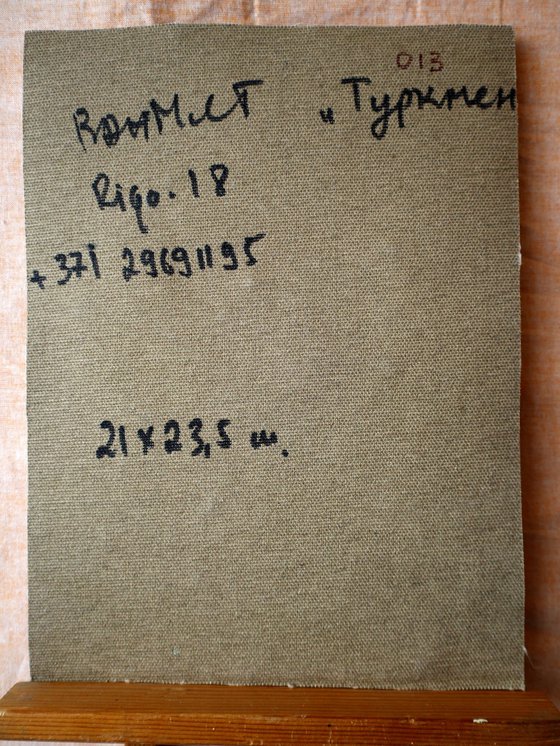 013
„Туркмен
Rigo. 18
+371 29691195
21 x 23,5 ш.